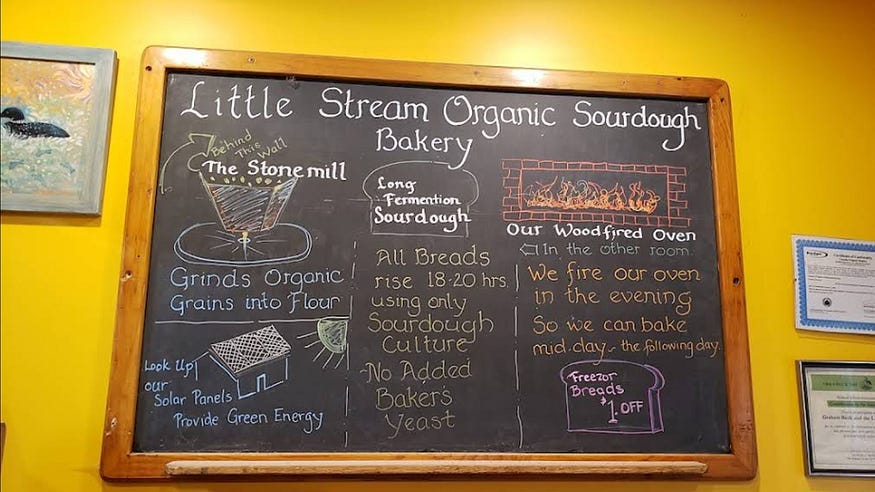 Little Stream Organic Sourdough
Bakery
Behind
This
Wall
The Stonemill
Grinds Organic
Grains into Flour
Look Up
our
Solar Panels
Provide Green Energy
Long
Fermention
Sourdough
All Breads
rise 18-20 hrs.
using only
Sourdough
Culture
-No Added
Baker's
Yeast
Our Woodfired Oven
In the other room
We fire our oven
in the evening
So we can bake
mid.day - the following day.
Freezor
Breads
$1 OFF
Certificate of Conformity